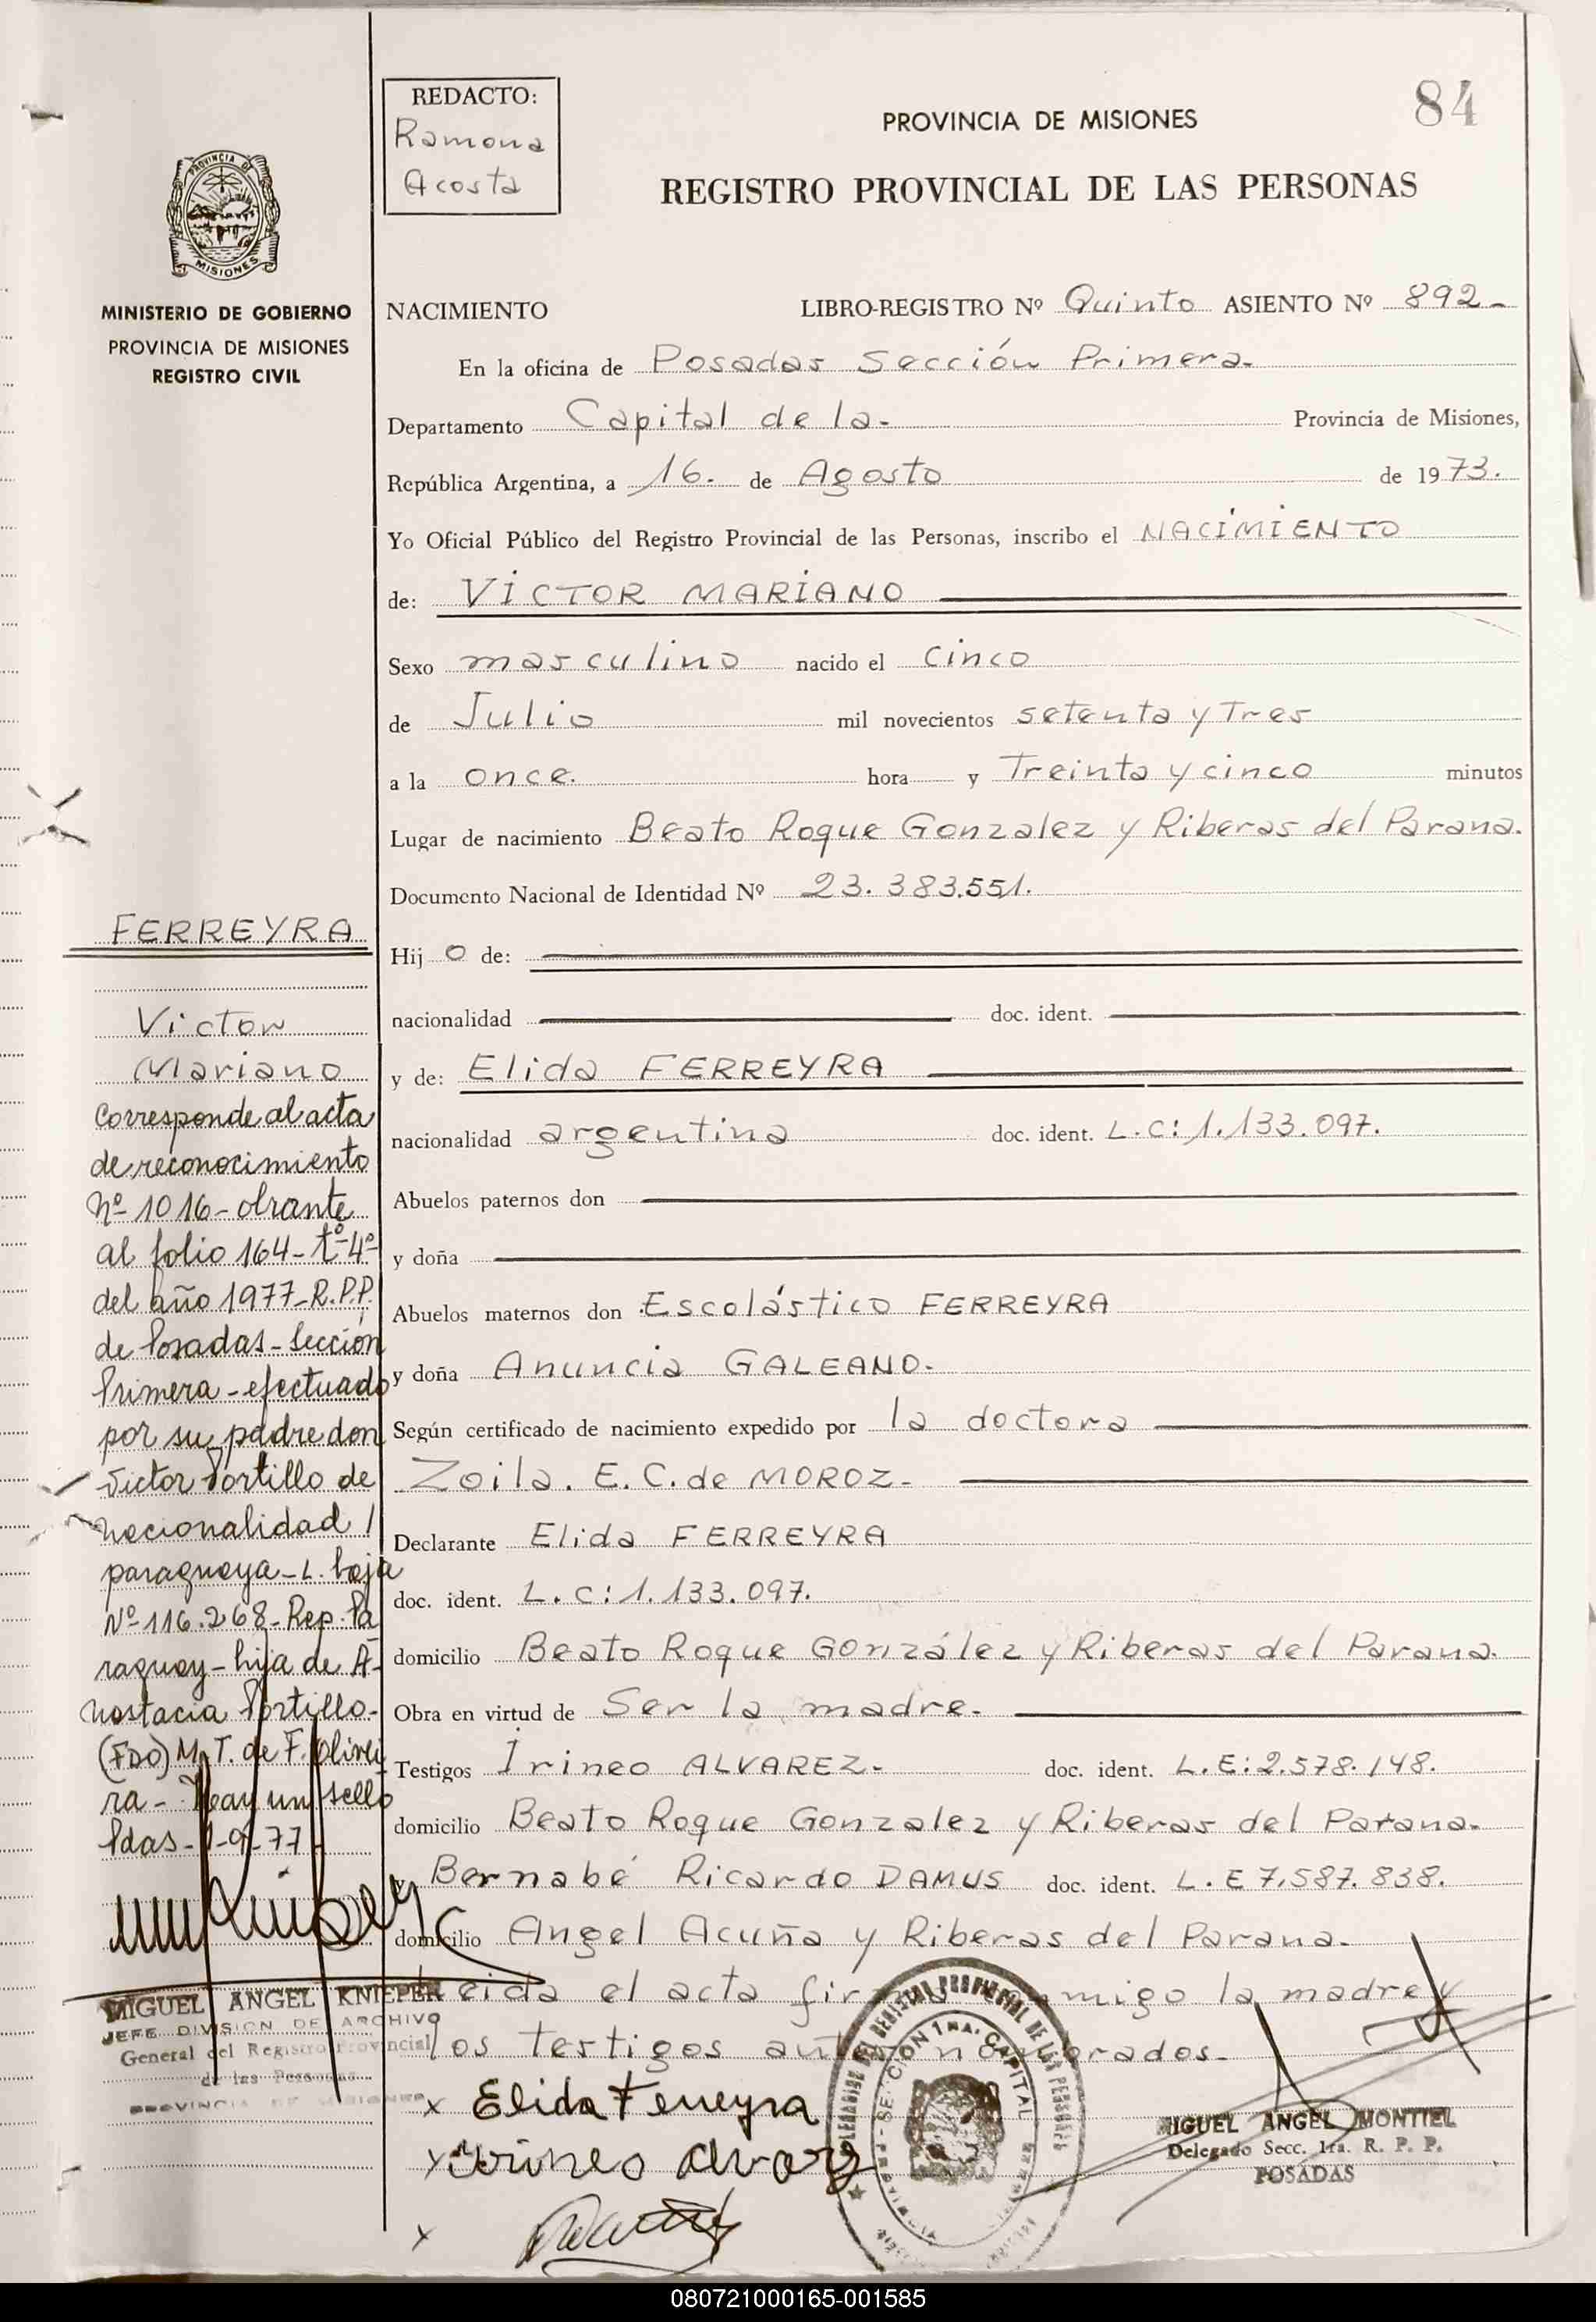 84
REDACTO:
Ramona
Acosta
PROVINCIA DE MISIONES
REGISTRO PROVINCIAL DE LAS PERSONAS
PROVINCIA DE
MISIONES
MINISTERIO DE GOBIERNO
PROVINCIA DE MISIONES
REGISTRO CIVIL
NACIMIENTO LIBRO-REGISTRO Nº Quinto ASIENTO Nº 892-
En la oficina de Posadas Sección Primera-
Departamento Capital de la- Provincia de Misiones,
República Argentina, a 16. de Agosto de 1973.
Yo Oficial Público del Registro Provincial de las Personas, inscribo el NACIMIENTO
de: VICTOR MARIANO
Sexo masculino nacido el cinco
de Julio mil novecientos setenta y Tres
a la once. hora y Treinta y cinco minutos
Lugar de nacimiento Beato Roque Gonzalez y Riberas del Parana.
Documento Nacional de Identidad Nº 23.383.551.
Hij o de:
nacionalidad doc. ident.
y de: Elida FERREYRA
nacionalidad argentina doc. ident. L.C: 1.133.097.
Abuelos paternos don
y doña
Abuelos maternos don Escolástico FERREYRA
y doña Anuncia GALEANO.
Según certificado de nacimiento expedido por la doctora
Zoila. E. C. de MOROZ-
Declarante Elida FERREYRA
doc. ident. L.C: 1.133.097.
domicilio Beato Roque González y Riberas del Parana.
Obra en virtud de Ser la madre-
Testigos Irineo ALVAREZ- doc. ident. L.E: 2.578.148.
domicilio Beato Roque Gonzalez y Riberas del Parana.
y Bernabé Ricardo DAMUS doc. ident. L.E 7.587.838.
domicilio Angel Acuña y Riberas del Parana.
Leida el acta firman conmigo la madre y
los testigos antes nombrados-
x Elida Ferreyra
x Irineo Alvarez
x
MIGUEL ANGEL MONTIEL
Delegado Secc. 1ra. R. P. P.
POSADAS
FERREYRA
Victor
Mariano
Corresponde al acta
de reconocimiento
Nº 1016- obrante
al folio 164- tº 4º
del año 1977- R.P.P.
de Posadas- Sección
Primera- efectuado
por su padre don
Victor Portillo de
nacionalidad /
paraguaya- L. baja
Nº 116.268- Rep. Pa
raguay- hija de A-
nastacia Portillo-
(FDO) M. T. de F. Olivei
ra- Hay un sello
Pdas- 1-9-77-
MIGUEL ANGEL KNIEPER
JEFE DIVISION DE ARCHIVO
General del Registro Provincial
de las Personas
PROVINCIA DE MISIONES
080721000165-001585